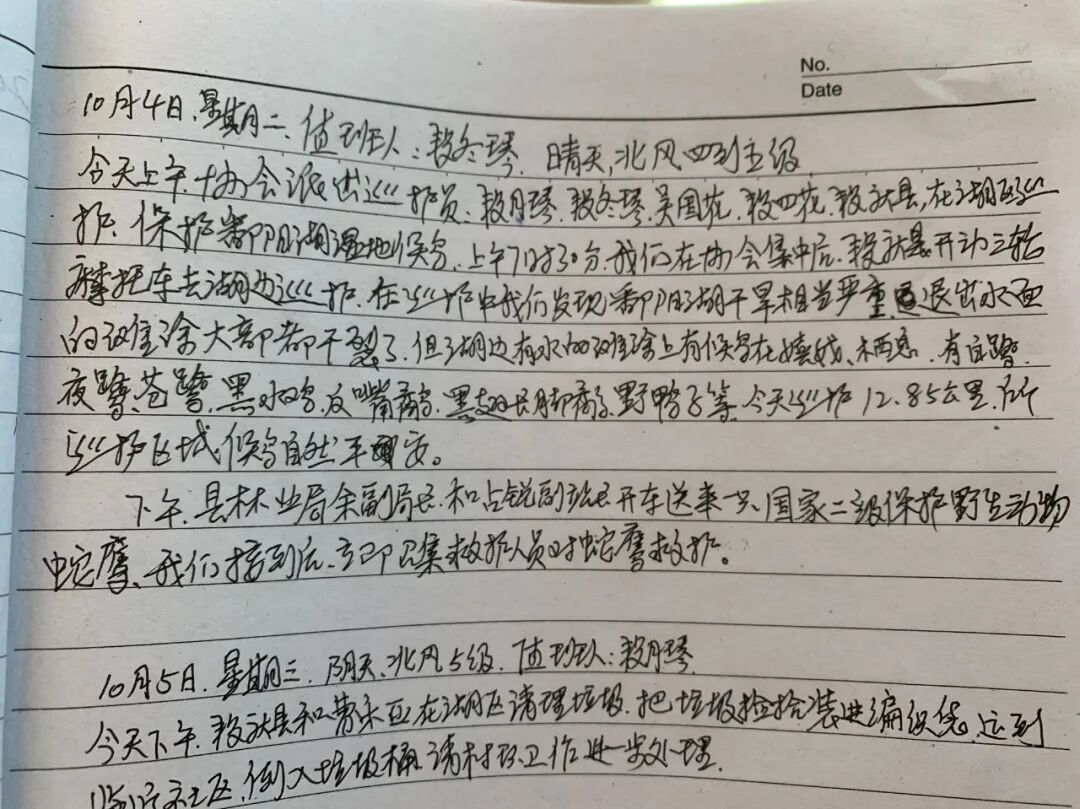 No.
Date
10月4日.星期二.值班人:段冬琴.晴天,北风四到五级
今天上午.协会派出巡护员.段月琴.段冬琴.吴国花.段四花.段,在湖区巡
护.保护鄱阳湖湿地候鸟.上午7时30分.我们在协会集中后.段开动三轮
摩托车去湖边巡护.在巡护中我们发现鄱阳湖干旱相当严重,退出水面
的滩涂大部都干裂了.但湖边有水的滩涂上有候鸟在嬉戏.栖息.有白鹭.
夜鹭.苍鹭.黑水鸡.反嘴鹬.黑翅长脚鹬.野鸭子等.今天巡护12.85公里.所
巡护区域候鸟自然平安。
下午.县林业局余副局长和占锐副班长开车送来一只国家二级保护野生动物
蛇鹰.我们接到后.立即召集救护人员对蛇鹰救护。
10月5日.星期三.阴天.北风5级.值班人:段月琴
今天下午.段和曹在湖区清理垃圾.把垃圾捡拾装进编织袋.运到
社区.倒入垃圾桶.请村环卫工作进一步处理.